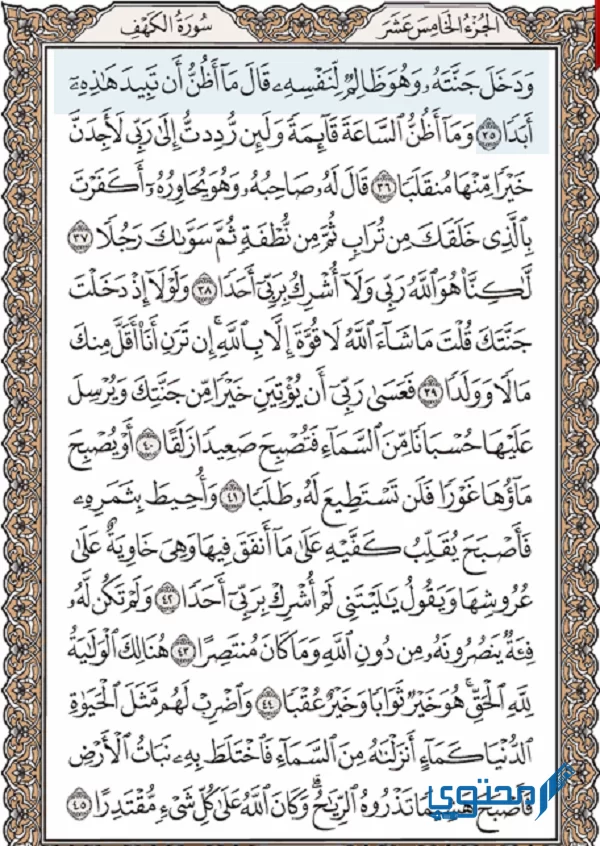 الجزء الخامس عشر
سورة الكهف
وَدَخَلَ جَنَّتَهُۥ وَهُوَ ظَالِمٌ لِّنَفْسِهِۦ قَالَ مَآ أَظُنُّ أَن تَبِيدَ هَٰذِهِۦٓ
أَبَدًا ٣٥ وَمَآ أَظُنُّ ٱلسَّاعَةَ قَآئِمَةً وَلَئِن رُّدِدتُّ إِلَىٰ رَبِّى لَأَجِدَنَّ
خَيْرًا مِّنْهَا مُنقَلَبًا ٣٦ قَالَ لَهُۥ صَاحِبُهُۥ وَهُوَ يُحَاوِرُهُۥٓ أَكَفَرْتَ
بِٱلَّذِى خَلَقَكَ مِن تُرَابٍ ثُمَّ مِن نُّطْفَةٍ ثُمَّ سَوَّىٰكَ رَجُلًا ٣٧
لَّٰكِنَّا۠ هُوَ ٱللَّهُ رَبِّى وَلَآ أُشْرِكُ بِرَبِّىٓ أَحَدًا ٣٨ وَلَوْلَآ إِذْ دَخَلْتَ
جَنَّتَكَ قُلْتَ مَا شَآءَ ٱللَّهُ لَا قُوَّةَ إِلَّا بِٱللَّهِ ۚ إِن تَرَنِ أَنَا۠ أَقَلَّ مِنكَ
مَالًا وَوَلَدًا ٣٩ فَعَسَىٰ رَبِّىٓ أَن يُؤْتِيَنِ خَيْرًا مِّن جَنَّتِكَ وَيُرْسِلَ
عَلَيْهَا حُسْبَانًا مِّنَ ٱلسَّمَآءِ فَتُصْبِحَ صَعِيدًا زَلَقًا ٤٠ أَوْ يُصْبِحَ
مَآؤُهَا غَوْرًا فَلَن تَسْتَطِيعَ لَهُۥ طَلَبًا ٤١ وَأُحِيطَ بِثَمَرِهِۦ
فَأَصْبَحَ يُقَلِّبُ كَفَّيْهِ عَلَىٰ مَآ أَنفَقَ فِيهَا وَهِىَ خَاوِيَةٌ عَلَىٰ
عُرُوشِهَا وَيَقُولُ يَٰلَيْتَنِى لَمْ أُشْرِكْ بِرَبِّىٓ أَحَدًا ٤٢ وَلَمْ تَكُن لَّهُۥ
فِئَةٌ يَنصُرُونَهُۥ مِن دُونِ ٱللَّهِ وَمَا كَانَ مُنتَصِرًا ٤٣ هُنَالِكَ ٱلْوَلَٰيَةُ
لِلَّهِ ٱلْحَقِّ ۚ هُوَ خَيْرٌ ثَوَابًا وَخَيْرٌ عُقْبًا ٤٤ وَٱضْرِبْ لَهُم مَّثَلَ ٱلْحَيَوٰةِ
ٱلدُّنْيَا كَمَآءٍ أَنزَلْنَٰهُ مِنَ ٱلسَّمَآءِ فَٱخْتَلَطَ بِهِۦ نَبَاتُ ٱلْأَرْضِ
فَأَصْبَحَ هَشِيمًا تَذْرُوهُ ٱلرِّيَٰحُ ۗ وَكَانَ ٱللَّهُ عَلَىٰ كُلِّ شَىْءٍ مُّقْتَدِرًا ٤٥
محتوى